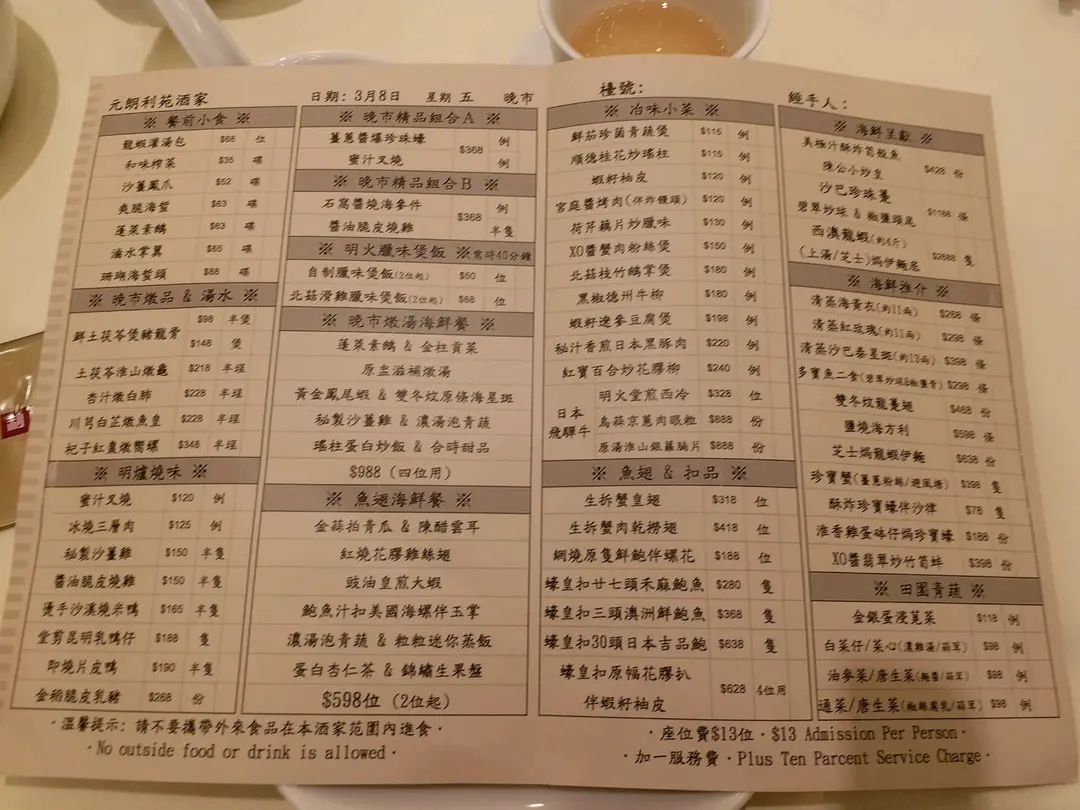 元朗利苑酒家
日期: 3月8日 星期 五 晚市
※ 餐前小食 ※
龍蝦灌湯包 $68 位
和味榨菜 $35 碟
沙薑鳳爪 $52 碟
爽脆海蜇 $63 碟
蓬萊素鵝 $63 碟
滷水掌翼 $65 碟
珊瑚海蜇頭 $88 碟
※ 晚市燉品 & 湯水 ※
鮮土茯苓煲豬龍骨 $98 半煲
$148 煲
土茯苓淮山燉龜 $218 半埕
杏汁燉白肺 $228 半埕
川芎白芷燉魚皇 $228 半埕
杞子紅棗燉響螺 $348 半埕
※ 明爐燒味 ※
蜜汁叉燒 $120 例
冰燒三層肉 $125 例
秘製沙薑雞 $150 半隻
醬油脆皮燒雞 $150 半隻
燙手沙溪燒米鴨 $165 半隻
堂剪昆明乳鴨仔 $188 隻
即燒片皮鴨 $190 半隻
金稻脆皮乳豬 $268 份
※ 晚市精品組合A ※
薑蔥醬爆珍珠蠔 例
$368
蜜汁叉燒 例
※ 晚市精品組合B ※
石窩醬燒海參件 例
$368
醬油脆皮燒雞 半隻
※ 明火臘味煲飯 ※需時40分鐘
自制臘味煲飯(2位起) $50 位
北菇滑雞臘味煲飯(2位起) $68 位
※ 晚市燉湯海鮮餐 ※
蓬萊素鵝 & 金柱貢菜
原盅滋補燉湯
黃金鳳尾蝦 & 雙冬炆原條海星斑
秘製沙薑雞 & 濃湯泡青蔬
瑤柱蛋白炒飯 & 合時甜品
$988 (四位用)
※ 魚翅海鮮餐 ※
金蒜拍青瓜 & 陳醋雲耳
紅燒花膠雞絲翅
豉油皇煎大蝦
鮑魚汁扣美國海螺伴玉掌
濃湯泡青蔬 & 粒粒迷你蒸飯
蛋白杏仁茶 & 錦繡生果盤
$598位 (2位起)
·溫馨提示: 請不要攜帶外來食品在本酒家范圍內進食·
·No outside food or drink is allowed·
檯號:
經手人:
※ 冶味小菜 ※
鮮茄珍菌青蔬煲 $115 例
順德桂花炒瑤柱 $115 例
蝦籽柚皮 $120 例
宮庭醬烤肉(伴炸饅頭) $120 例
荷芹藕片炒臘味 $130 例
XO醬蟹肉粉絲煲 $150 例
北菇枝竹鵝掌煲 $180 例
黑椒德州牛柳 $180 例
蝦籽遼參豆腐煲 $198 例
秘汁香煎日本黑豚肉 $220 例
紅寶百合炒花膠柳 $240 例
日本飛驒牛
明火堂煎西冷 $328 位
烏蒜京蔥肉眼粒 $888 份
原湯淮山銀蘿腩片 $888 份
※ 魚翅 & 扣品 ※
生拆蟹皇翅 $318 位
生拆蟹肉乾撈翅 $418 位
網燒原隻鮮鮑伴螺花 $188 位
蠔皇扣廿七頭禾麻鮑魚 $280 隻
蠔皇扣三頭澳洲鮮鮑魚 $368 隻
蠔皇扣30頭日本吉品鮑 $638 隻
蠔皇扣原幅花膠扒
$628 4位用
伴蝦籽柚皮
※ 海鮮呈獻 ※
美極汁酥炸筍殼魚
$428 份
陳公小炒皇
沙巴珍珠躉
$1188 條
碧翠炒球 & 椒鹽頭尾
西澳龍蝦(約4斤)
$2888 隻
(上湯/芝士)焗伊麵底
※ 海鮮推介 ※
清蒸海青衣(約11両) $268 條
清蒸紅玫瑰(約11両) $298 條
清蒸沙巴泰星斑(約13両) $398 條
多寶魚二食(碧翠炒球&椒鹽骨) $298 條
雙冬炆龍躉翅 $468 份
鹽燒海方利 $598 條
芝士焗龍蝦伊麵 $638 份
珍寶蟹(薑蔥粉絲/避風塘) $398 隻
酥炸珍寶蠔伴沙律 $78 隻
淮香雞蛋砵仔焗珍寶蠔 $188 份
XO醬翡翠炒竹筍蚌 $398 份
※ 田園青蔬 ※
金銀蛋浸莧菜 $118 例
白菜仔/菜心(濃雞湯/蒜茸) $98 例
油麥菜/唐生菜(鯪醬/蒜茸) $98 例
通菜/唐生菜(椒絲腐乳/蒜茸) $98 例
·座位費$13位·$13 Admission Per Person·
·加一服務費·Plus Ten Parcent Service Charge·